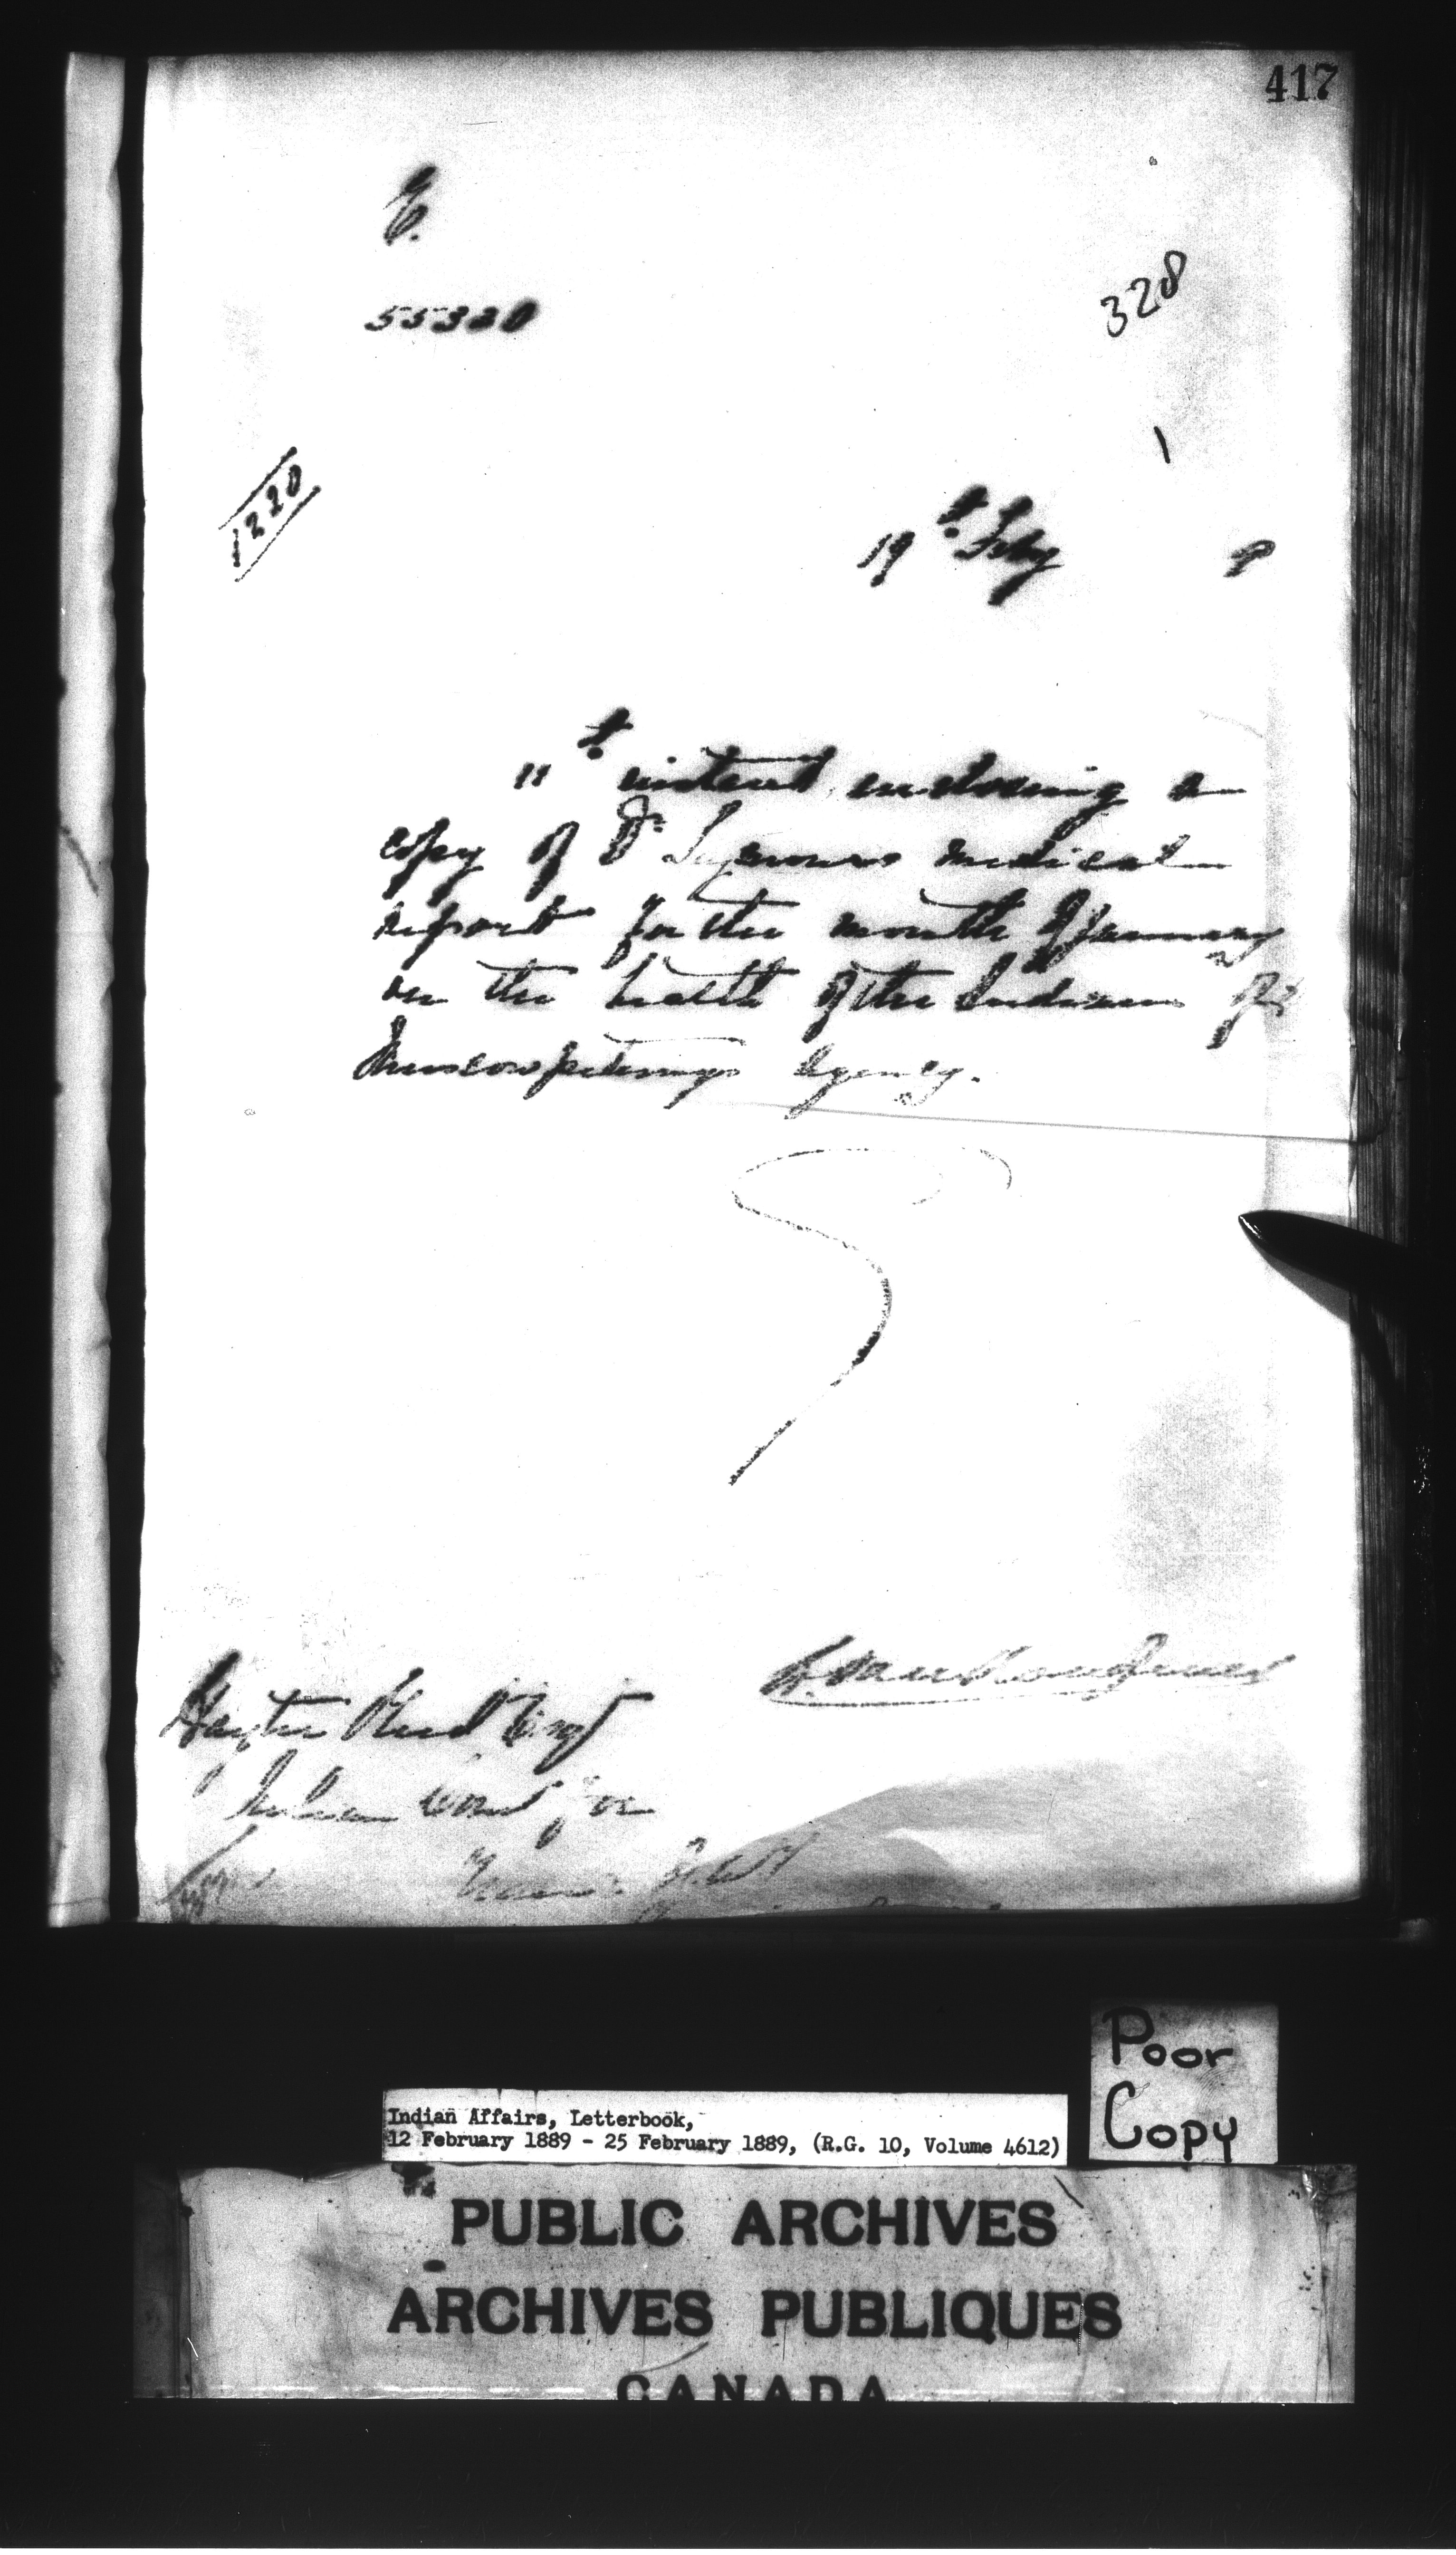 417
E.
55320
328
1220
19th Feby 9
11th instant, enclosing a
copy of Dr Seymours medical
report for the month of January
on the health of the Indians of
Muscowpetungs Agency.
L. Vankoughnet
Hayter Reed Esqr
Indian Comr for
Poor
Copy
Indian Affairs, Letterbook,
12 February 1889 - 25 February 1889, (R.G. 10, Volume 4612)
PUBLIC ARCHIVES
ARCHIVES PUBLIQUES
CANADA